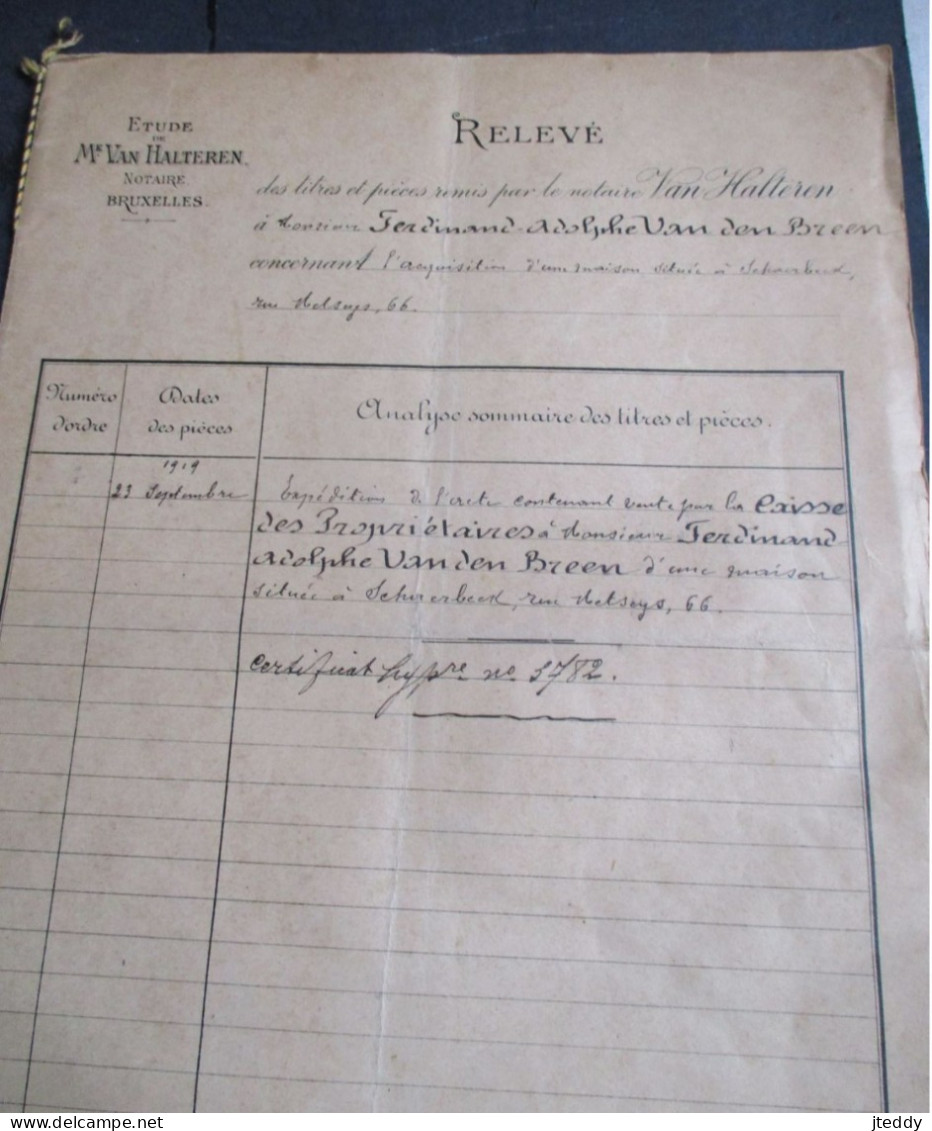 ETUDE
DE
Me VAN HALTEREN.
NOTAIRE
BRUXELLES.
RELEVÉ
des titres et pièces remis par le notaire Van Halteren
à Monsieur Ferdinand-Adolphe Van den Breen
concernant l'acquisition d'une maison située à Schaerbeek,
rue Metsys, 66.
Numéro
d'ordre
Dates
des pièces
Analyse sommaire des titres et pièces.
1919
23 Septembre
Expédition de l'acte contenant vente par la Caisse
des Propriétaires à Monsieur Ferdinand-
Adolphe Van den Breen d'une maison
située à Schaerbeek, rue Metsys, 66.
Certificat hypre no 5782.
delcampe.net
jteddy